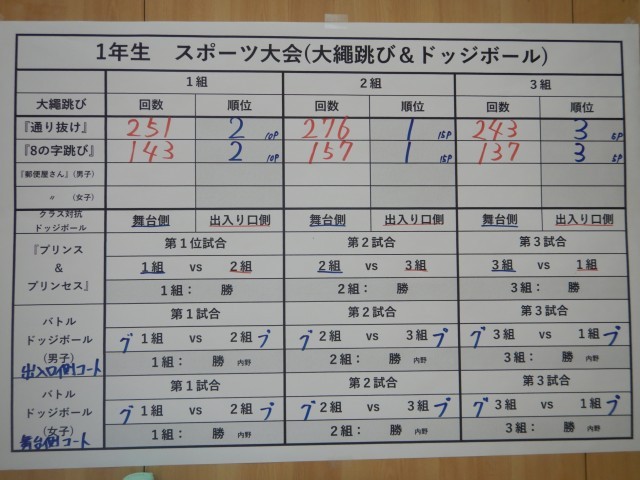 1年生 スポーツ大会(大縄跳び＆ドッジボール)
1組 2組 3組
大縄跳び 回数 順位 回数 順位 回数 順位
『通り抜け』 251 2 10P 276 1 15P 243 3 5P
『8の字跳び』 143 2 10P 157 1 15P 137 3 5P
『郵便屋さん』(男子)
〃 (女子)
クラス対抗
ドッジボール 舞台側 出入り口側 舞台側 出入り口側 舞台側 出入り口側
『プリンス
＆
プリンセス』
第1位試合 第2試合 第3試合
1組 vs 2組 2組 vs 3組 3組 vs 1組
1組： 勝 2組： 勝 3組： 勝
バトル
ドッジボール
(男子)
出入口側コート
第1試合 第2試合 第3試合
ブ 1組 vs 2組 ブ ブ 2組 vs 3組 ブ ブ 3組 vs 1組 ブ
1組： 勝 内野 2組： 勝 内野 3組： 勝 内野
バトル
ドッジボール
(女子)
舞台側コート
第1試合 第2試合 第3試合
ブ 1組 vs 2組 ブ ブ 2組 vs 3組 ブ ブ 3組 vs 1組 ブ
1組： 勝 内野 2組： 勝 内野 3組： 勝 内野